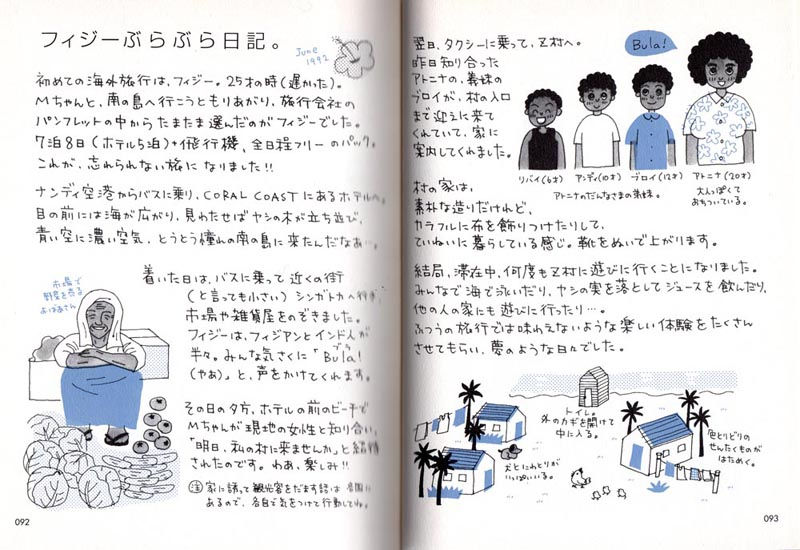 フィジーぶらぶら日記。
June
1992
初めての海外旅行は、フィジー。25才の時(遅かった)。
Mちゃんと、南の島へ行こうともりあがり、旅行会社の
パンフレットの中からたまたま選んだのがフィジーでした。
7泊8日(ホテル5泊)+飛行機、全日程フリーのパック。
これが、忘れられない旅になりました!!
ナンディ空港からバスに乗り、CORAL COASTにあるホテルへ。
目の前には海が広がり、見わたせばヤシの木が立ち並び、
青い空に濃い空気、とうとう憧れの南の島に来たんだなあ…。
市場で
野菜を売る
おばあさん
着いた日は、バスに乗って近くの街
(と言っても小さい)シンガトカへ行き、
市場や雑貨屋をのぞきました。
フィジーは、フィジアンとインド人が
半々。みんな気さくに「Bula!
ブラ
(やあ)」と、声をかけてくれます。
その日の夕方、ホテルの前のビーチで
Mちゃんが現地の女性と知り合い、
「明日、私の村に来ませんか」と紹待
されたのです。わあ、楽しみ!!
注 家に誘って観光客をだます話は各国に
あるので、各自で気をつけて行動してね。
092
翌日、タクシーに乗って、Z村へ。
昨日知り合った
アトニナの、義妹の
ブロイが、村の入口
まで迎えに来て
くれていて、家に
案内してくれました。
Bula!
リバイ(6才)
アンディ(10才)
ブロイ(12才)
アトニナ(20才)
アトニナのだんなさまの弟妹。
大人っぽくて
おちついている。
村の家は、
素朴な造りだけれど、
カラフルに布を飾りつけたりして、
ていねいに暮らしている感じ。靴をぬいで上がります。
結局、滞在中、何度もZ村に遊びに行くことになりました。
みんなで海で泳いだり、ヤシの実を落としてジュースを飲んだり、
他の人の家にも遊びに行ったり…。
ふつうの旅行では味わえないような楽しい体験をたくさん
させてもらい、夢のような日々でした。
トイレ。
外のカギを開けて
中に入る。
犬とにわとりが
いっぱいいる。
色とりどりの
せんたくものが
はためく。
093